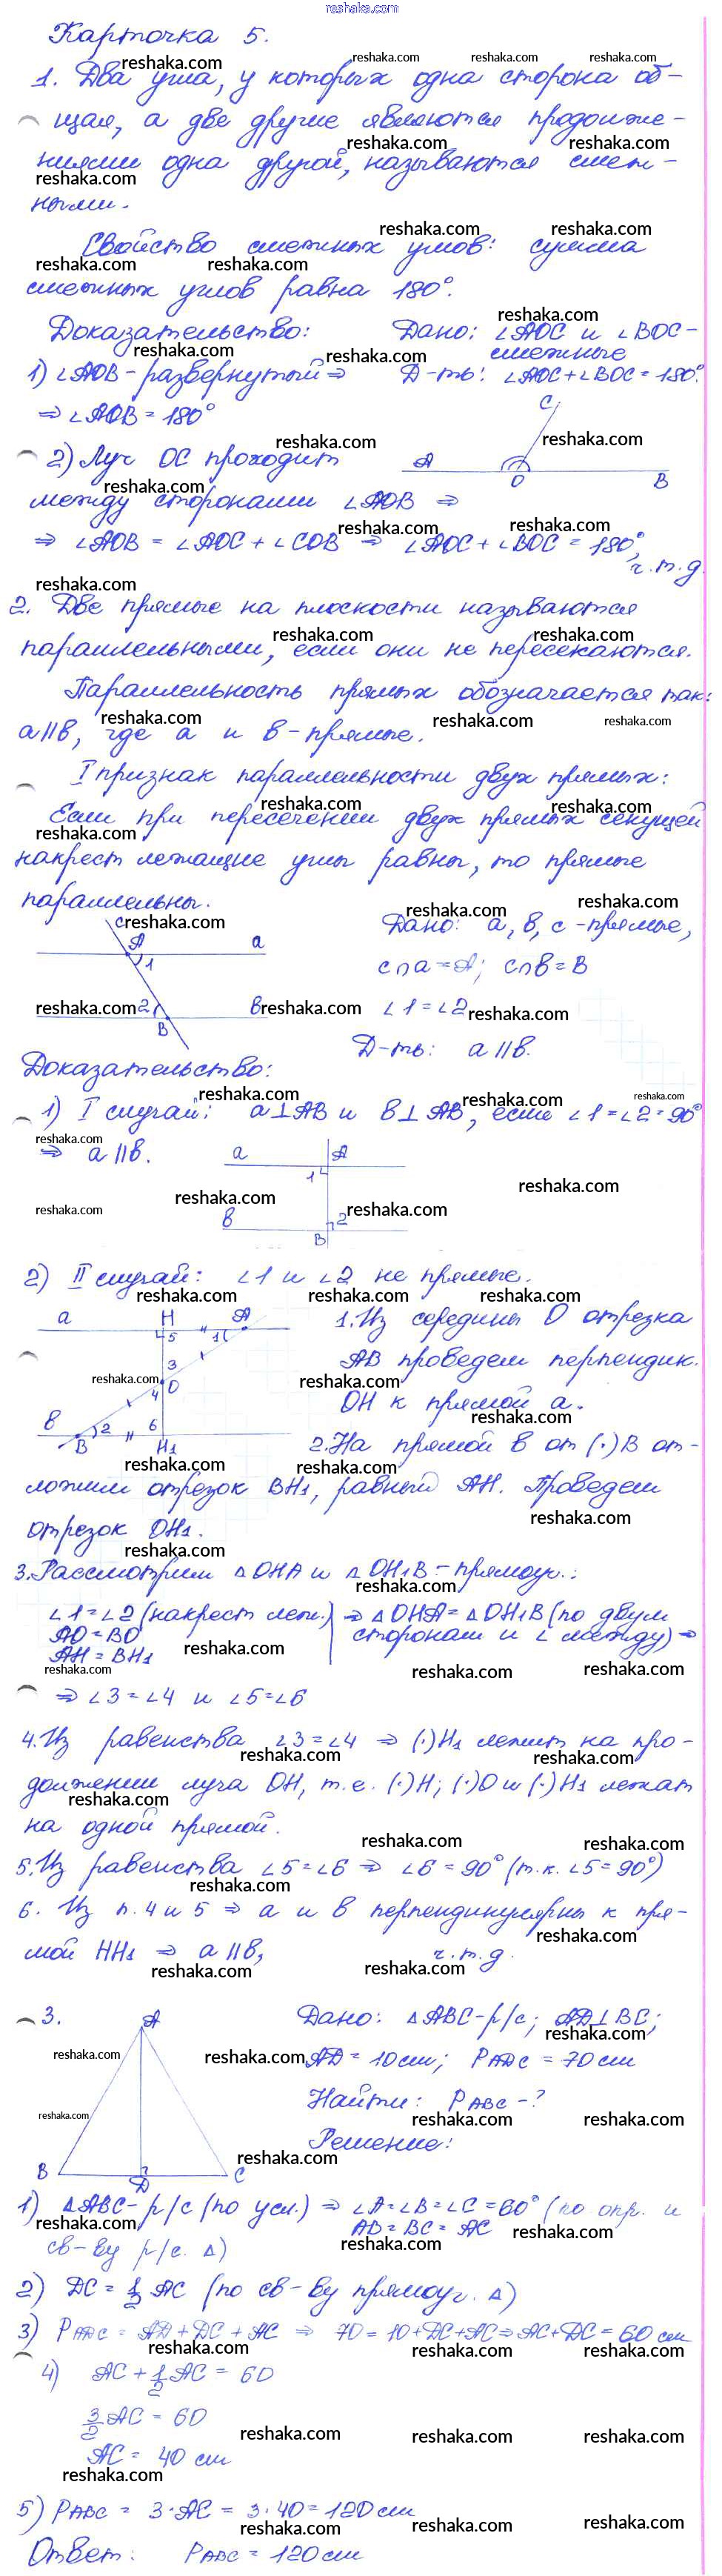 reshaka.com
Карточка 5.
1. Два угла, у которых одна сторона об-
щая, а две другие являются продолже-
ниями одна другой, называются смеж-
ными.
Свойство смежных углов: сумма
смежных углов равна 180°.
Доказательство:
Дано: ∠AOC и ∠BOC -
смежные
1) ∠AOB - развернутый ⇒
Д-ть: ∠AOC + ∠BOC = 180°.
⇒ ∠AOB = 180°
C
2) Луч OC проходит
A O B
между сторонами ∠AOB ⇒
⇒ ∠AOB = ∠AOC + ∠COB ⇒ ∠AOC + ∠BOC = 180°,
ч.т.д.
2. Две прямые на плоскости называются
параллельными, если они не пересекаются.
Параллельность прямых обозначается так:
a||b, где a и b - прямые.
I признак параллельности двух прямых:
Если при пересечении двух прямых секущей
накрест лежащие углы равны, то прямые
параллельны.
c A a
1
2 b
B
Дано: a, b, c - прямые,
c∩a = A; c∩b = B
∠1 = ∠2
Д-ть: a||b.
Доказательство:
1) I случай: a⊥AB и b⊥AB, если ∠1 = ∠2 = 90°
⇒ a||b.
a A
1
b 2
B
2) II случай: ∠1 и ∠2 не прямые.
a H A
5 1
3
O
4
b 2 6
B H1
1. Из середины O отрезка
AB проведем перпендик.
OH к прямой a.
2. На прямой b от (·)B от-
ложим отрезок BH1, равный AH. Проведем
отрезок OH1.
3. Рассмотрим △OHA и △OH1B - прямоуг.:
∠1 = ∠2 (накрест леж.) ⇒ △OHA = △OH1B (по двум
AO = BO
сторонам и ∠ между) ⇒
AH = BH1
⇒ ∠3 = ∠4 и ∠5 = ∠6
4. Из равенства ∠3 = ∠4 ⇒ (·)H1 лежит на про-
должении луча OH, т.е. (·)H; (·)O и (·)H1 лежат
на одной прямой.
5. Из равенства ∠5 = ∠6 ⇒ ∠6 = 90° (т.к. ∠5 = 90°)
6. Из п. 4 и 5 ⇒ a и b перпендикулярны к пря-
мой HH1 ⇒ a||b,
ч.т.д.
3.
A
B D C
Дано: △ABC - р/с; AD⊥BC;
AD = 10 см; PADC = 70 см
Найти: PABC - ?
Решение:
1) △ABC - р/с (по усл.) ⇒ ∠A = ∠B = ∠C = 60° (по опр. и
AB = BC = AC
св-ву р/с. △)
2) DC = 1/2 AC (по св-ву прямоуг. △)
3) PADC = AD + DC + AC ⇒ 70 = 10 + DC + AC ⇒ AC + DC = 60 см
4) AC + 1/2 AC = 60
3/2 AC = 60
AC = 40 см
5) PABC = 3·AC = 3·40 = 120 см
Ответ: PABC = 120 см